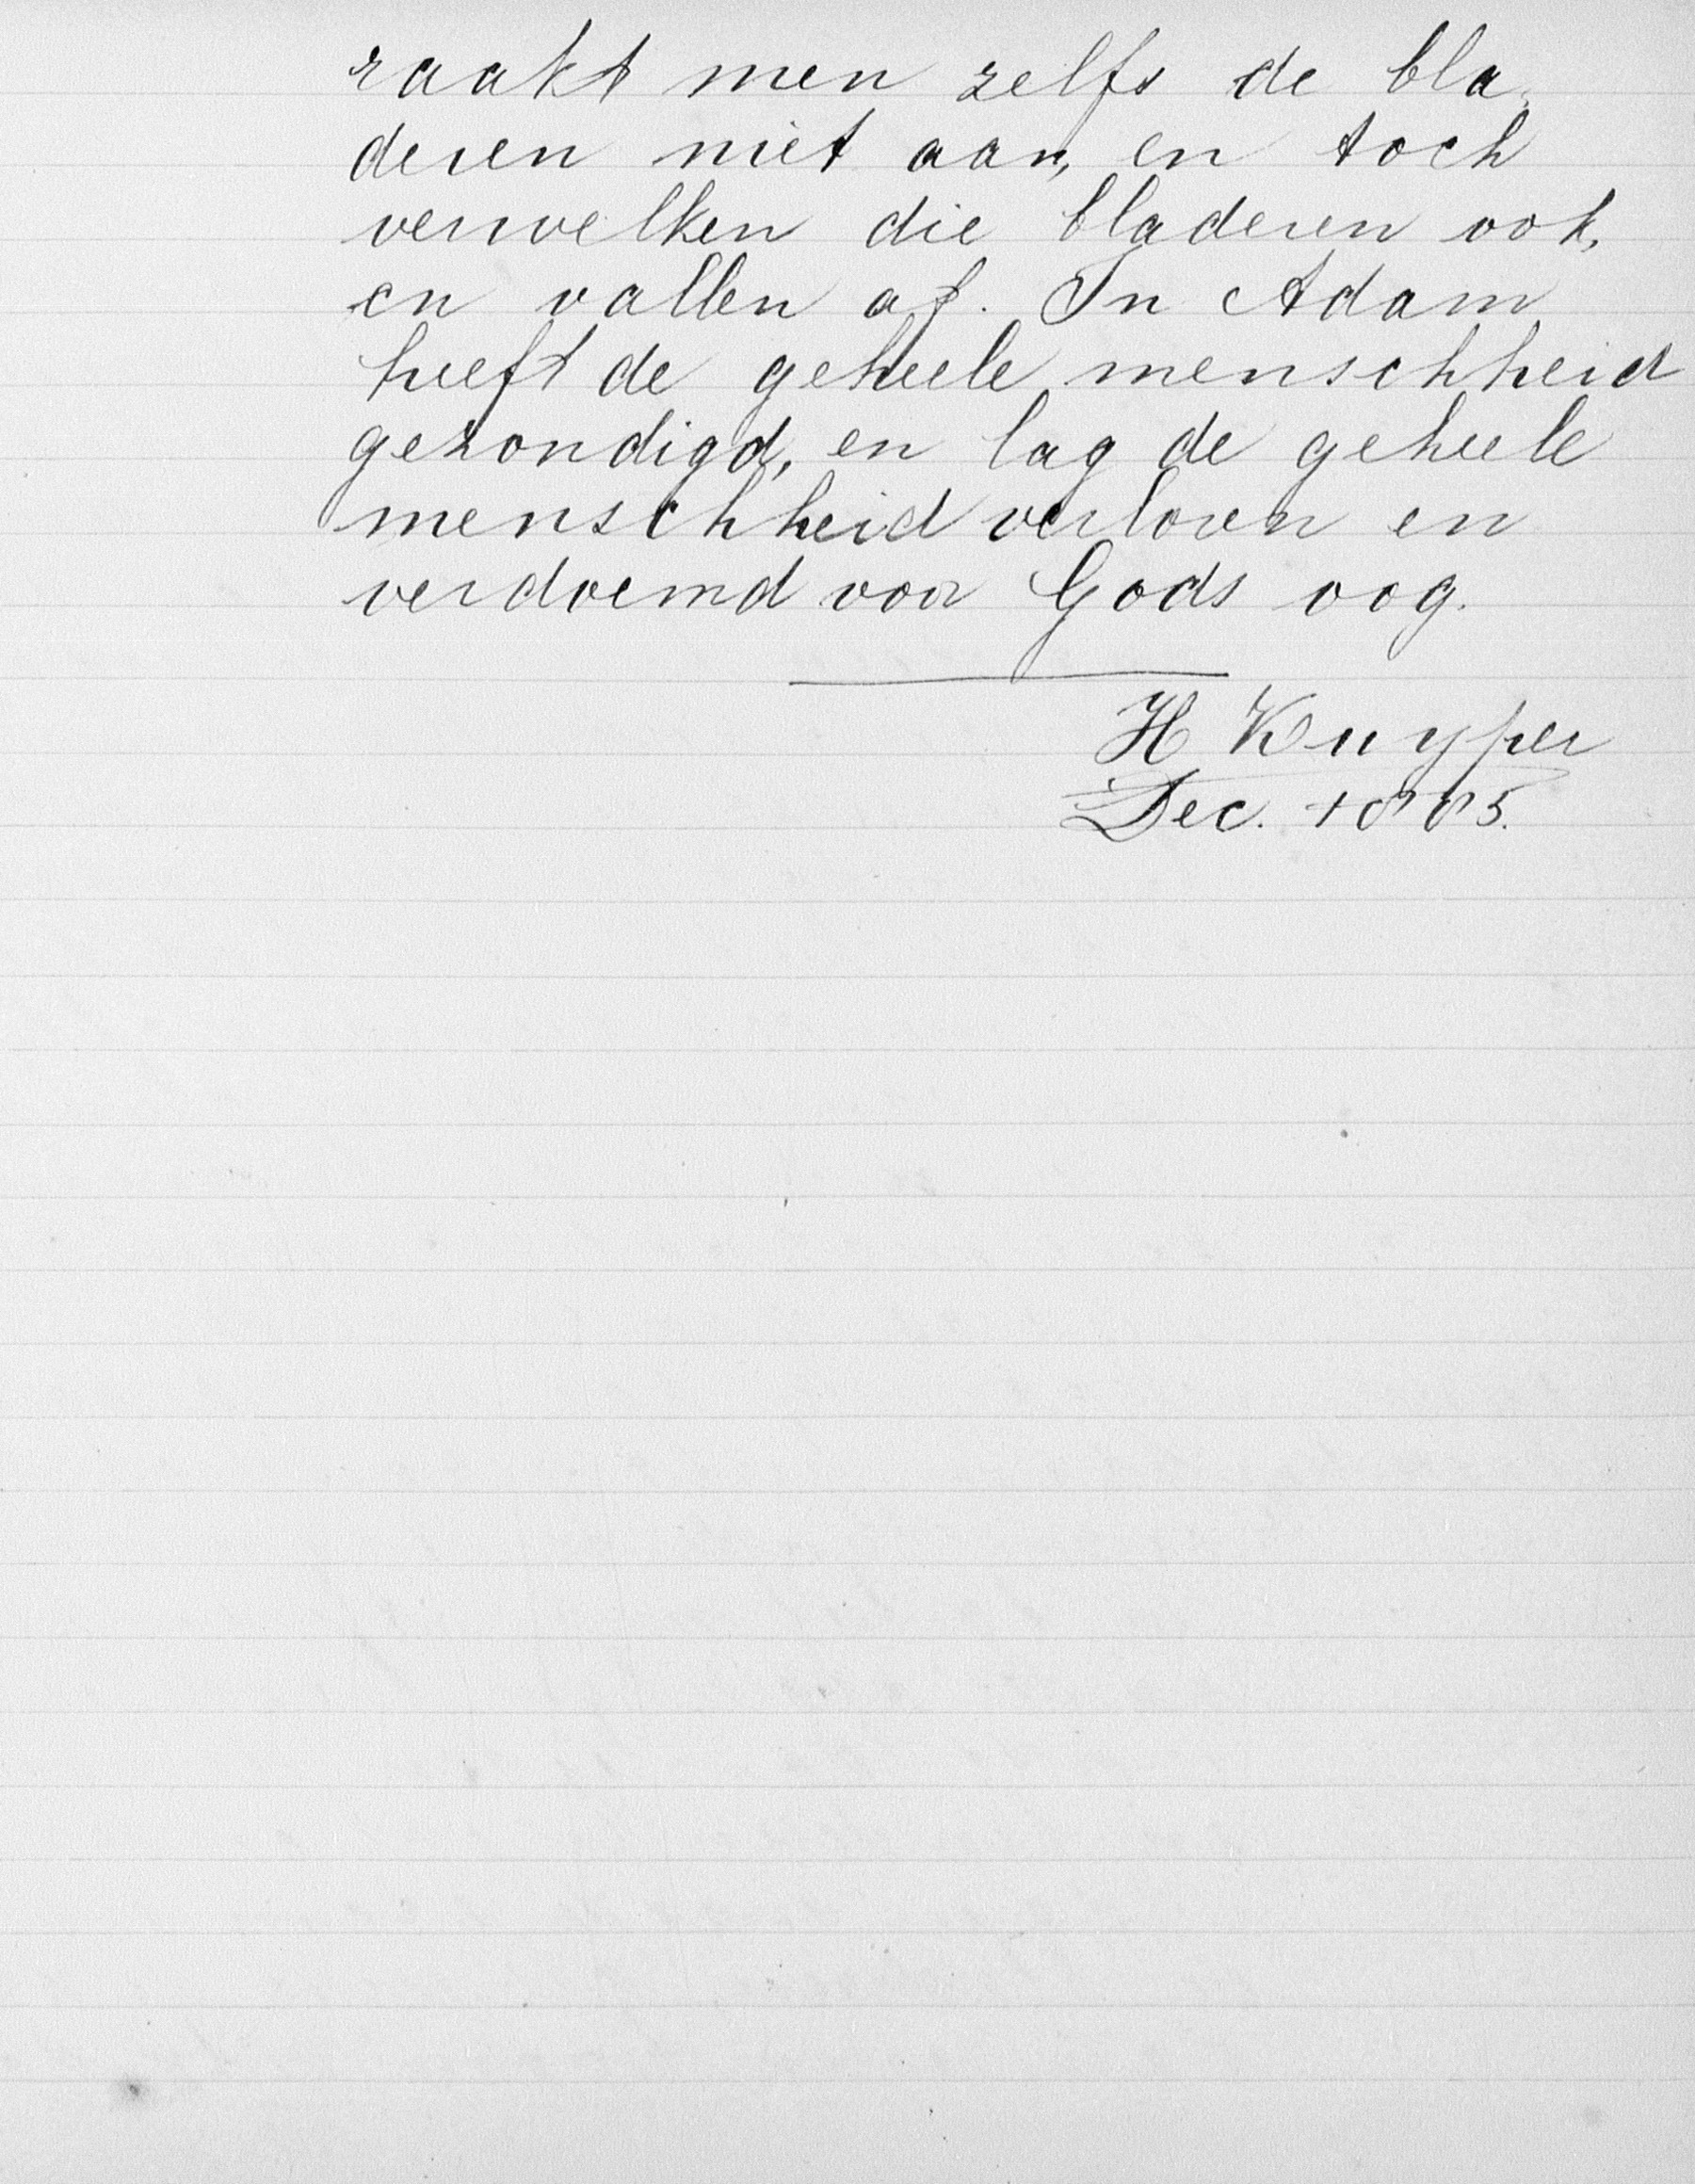 raakt men zelfs de bla-
deren niet aan, en toch
verwelken die bladeren ook,
en vallen af. In Adam
heeft de geheele menschheid
gezondigd, en lag de geheele
menschheid verloren en
verdoemd voor Gods oog.
H Kuyper
Dec. 1885.